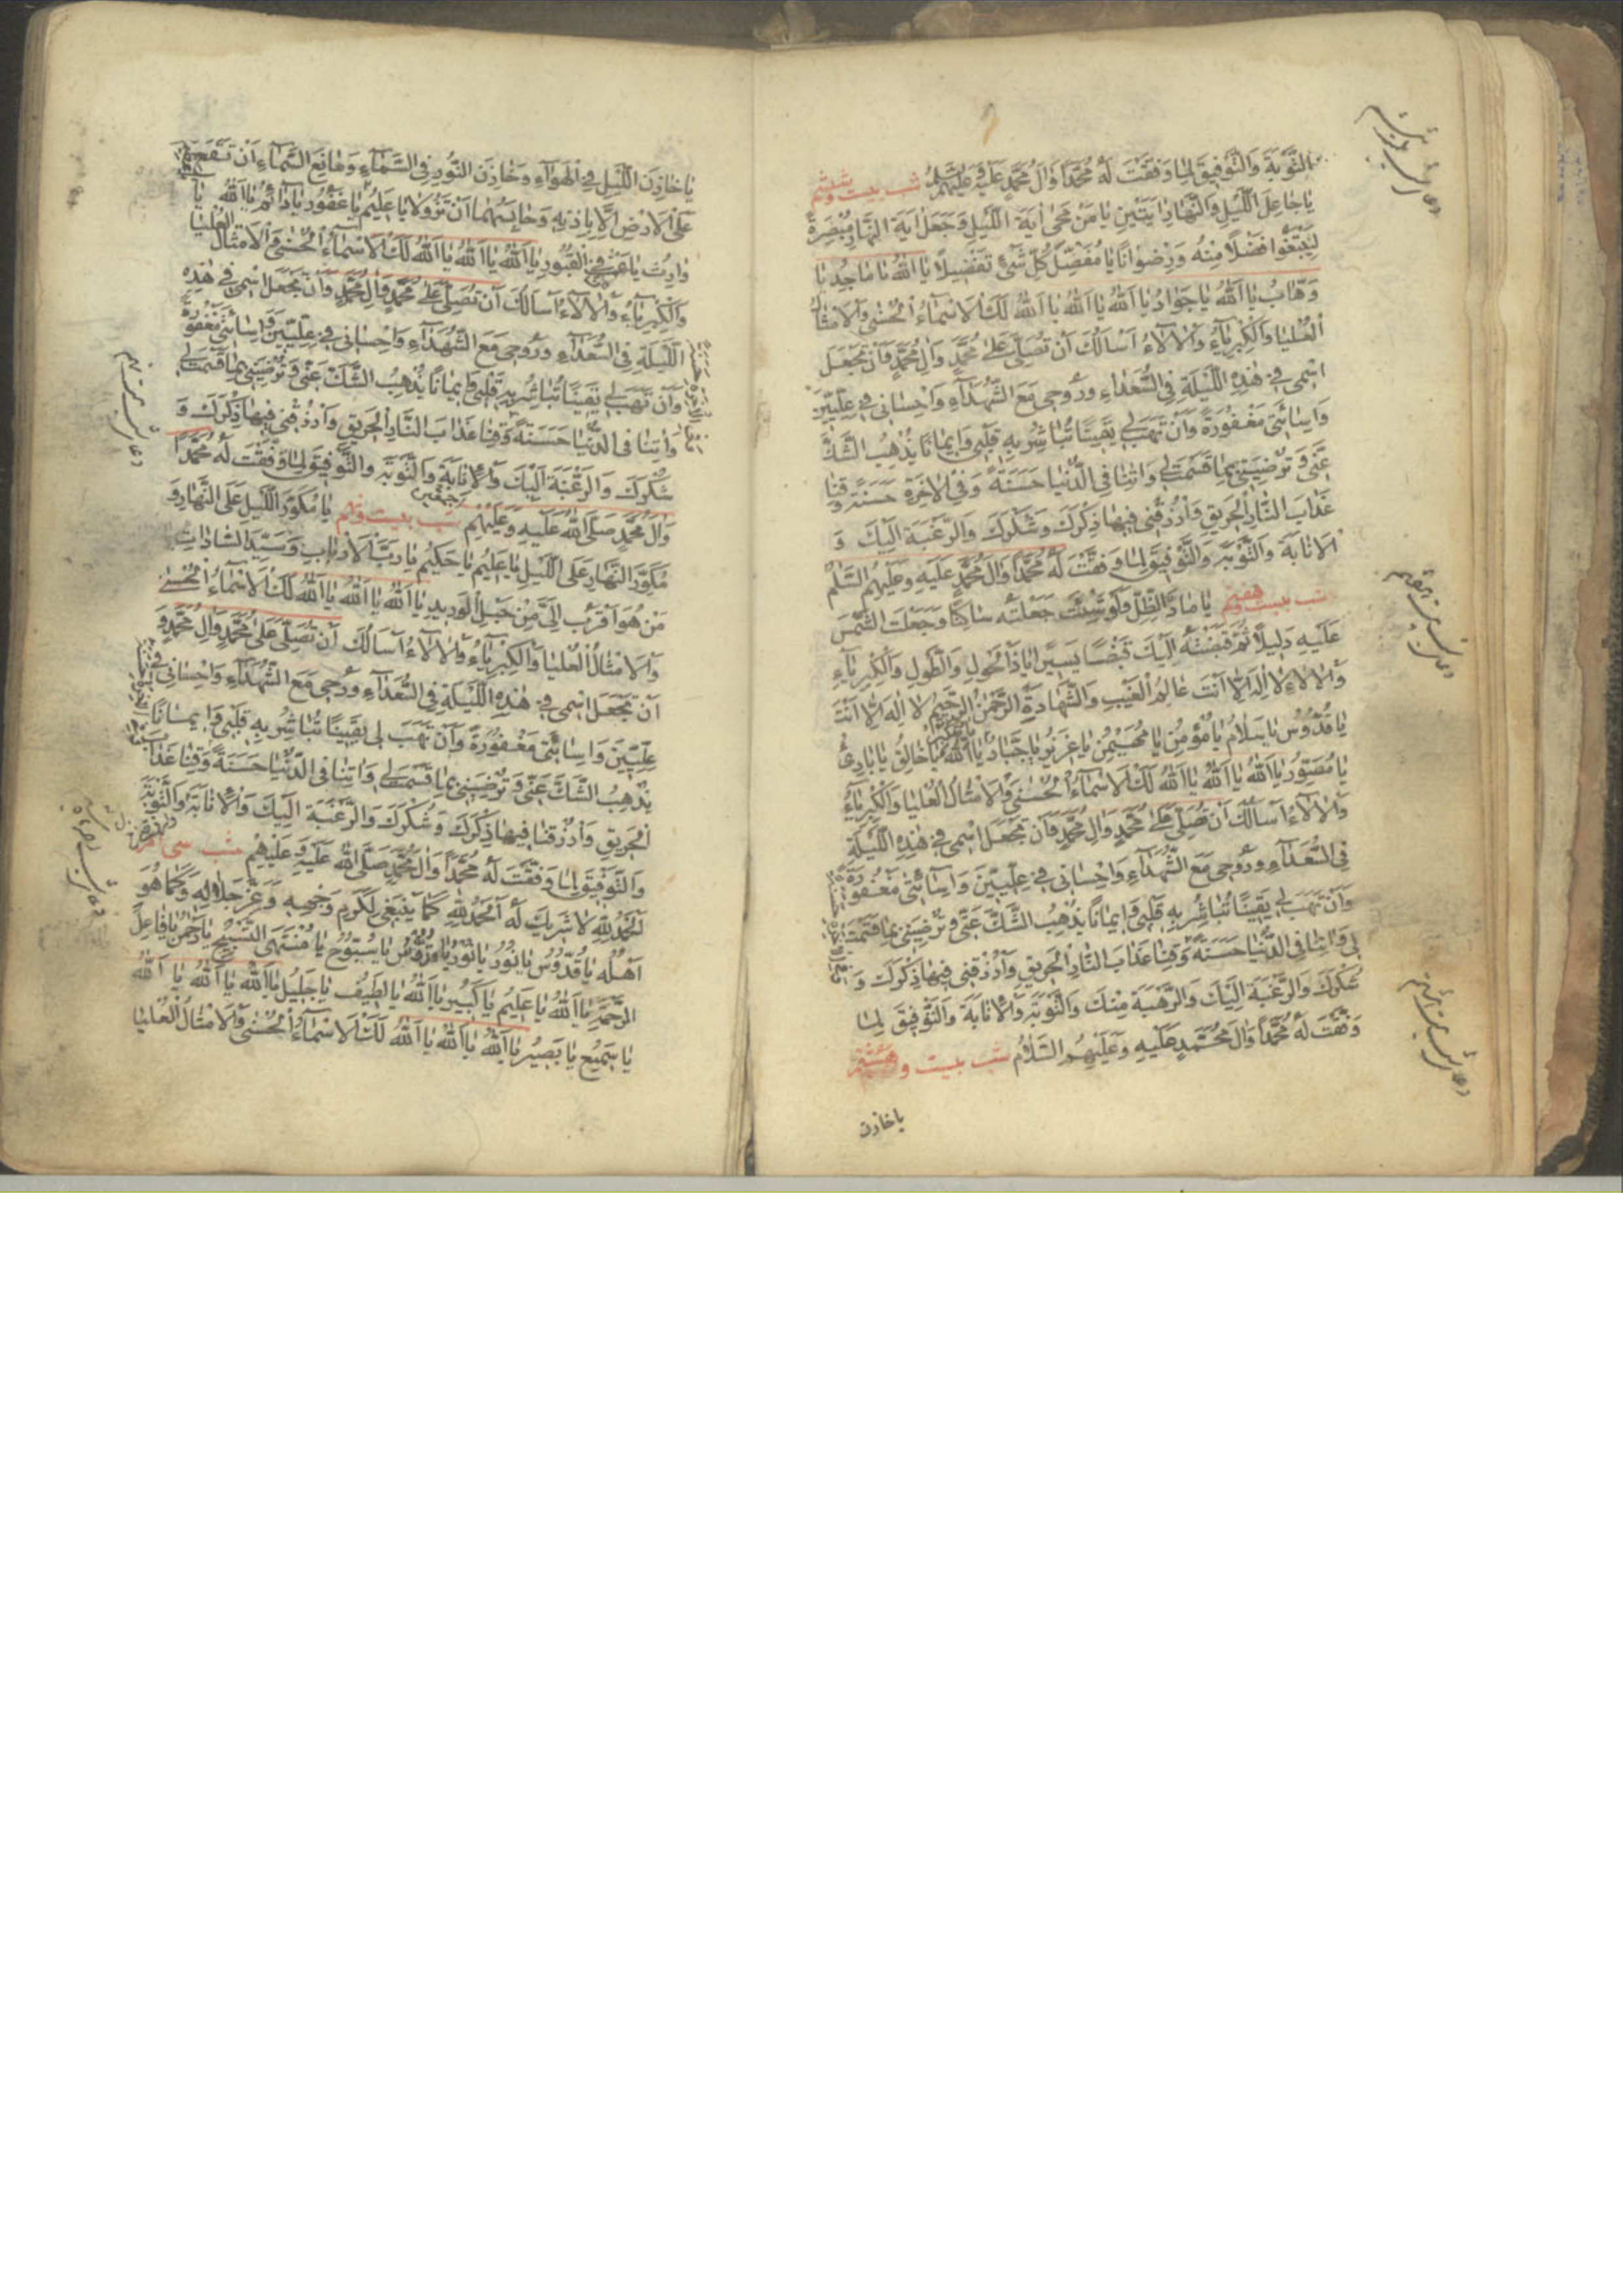 التَّوْبَةَ وَالتَّوْفِيقَ لِمَا وَفَّقْتَ لَهُ مُحَمَّدًا وَآلَ مُحَمَّدٍ عَلَيْهِ وَعَلَيْهِمُ السَّلَامُ شب بیست و ششم
يَا جَاعِلَ اللَّيْلِ وَالنَّهَارِ آيَتَيْنِ يَا مَنْ مَحَى آيَةَ اللَّيْلِ وَجَعَلَ آيَةَ النَّهَارِ مُبْصِرَةً
لِيَبْتَغُوا فَضْلًا مِنْهُ وَرِضْوَانًا يَا مُفَصِّلَ كُلِّ شَيْءٍ تَفْصِيلًا يَا اللَّهُ يَا مَاجِدُ يَا
وَهَّابُ يَا اللَّهُ يَا جَوَادُ يَا اللَّهُ يَا اللَّهُ يَا اللَّهُ لَكَ الْأَسْمَاءُ الْحُسْنَى وَالْأَمْثَالُ
الْعُلْيَا وَالْكِبْرِيَاءُ وَالْآلَاءُ أَسْأَلُكَ أَنْ تُصَلِّيَ عَلَى مُحَمَّدٍ وَآلِ مُحَمَّدٍ وَأَنْ تَجْعَلَ
اسْمِي فِي هَذِهِ اللَّيْلَةِ فِي السُّعَدَاءِ وَرُوحِي مَعَ الشُّهَدَاءِ وَإِحْسَانِي فِي عِلِّيِّينَ
وَإِسَائَتِي مَغْفُورَةً وَأَنْ تَهَبَ لِي يَقِينًا تُبَاشِرُ بِهِ قَلْبِي وَإِيمَانًا يُذْهِبُ الشَّكَّ
عَنِّي وَتُرْضِيَنِي بِمَا قَسَمْتَ لِي وَآتِنَا فِي الدُّنْيَا حَسَنَةً وَفِي الْآخِرَةِ حَسَنَةً وَقِنَا
عَذَابَ النَّارِ الْحَرِيقِ وَارْزُقْنِي فِيهَا ذِكْرَكَ وَشُكْرَكَ وَالرَّغْبَةَ إِلَيْكَ وَ
الْإِنَابَةَ وَالتَّوْبَةَ وَالتَّوْفِيقَ لِمَا وَفَّقْتَ لَهُ مُحَمَّدًا وَآلَ مُحَمَّدٍ عَلَيْهِ وَعَلَيْهِمُ السَّلَمُ
شب بیست و هفتم يَا مَادَّ الظِّلِّ وَلَوْ شِئْتَ جَعَلْتَهُ سَاكِنًا وَجَعَلْتَ الشَّمْسَ
عَلَيْهِ دَلِيلًا ثُمَّ قَبَضْتَهُ إِلَيْكَ قَبْضًا يَسِيرًا يَا ذَا الْحَوْلِ وَالطَّوْلِ وَالْكِبْرِيَاءِ
وَالْآلَاءِ لَا إِلَهَ إِلَّا أَنْتَ عَالِمُ الْغَيْبِ وَالشَّهَادَةِ الرَّحْمَنُ الرَّحِيمُ لَا إِلَهَ إِلَّا أَنْتَ
يَا قُدُّوسُ يَا سَلَامُ يَا مُؤْمِنُ يَا مُهَيْمِنُ يَا عَزِيزُ يَا جَبَّارُ يَا مُتَكَبِّرُ يَا اللَّهُ يَا خَالِقُ يَا بَارِئُ
يَا مُصَوِّرُ يَا اللَّهُ يَا اللَّهُ يَا اللَّهُ لَكَ الْأَسْمَاءُ الْحُسْنَى وَالْأَمْثَالُ الْعُلْيَا وَالْكِبْرِيَاءُ
وَالْآلَاءُ أَسْأَلُكَ أَنْ تُصَلِّيَ عَلَى مُحَمَّدٍ وَآلِ مُحَمَّدٍ وَأَنْ تَجْعَلَ اسْمِي فِي هَذِهِ اللَّيْلَةِ
فِي السُّعَدَاءِ وَرُوحِي مَعَ الشُّهَدَاءِ وَإِحْسَانِي فِي عِلِّيِّينَ وَإِسَائَتِي مَغْفُورَةً
وَأَنْ تَهَبَ لِي يَقِينًا تُبَاشِرُ بِهِ قَلْبِي وَإِيمَانًا يُذْهِبُ الشَّكَّ عَنِّي وَتُرْضِيَنِي بِمَا قَسَمْتَ
لِي وَآتِنَا فِي الدُّنْيَا حَسَنَةً وَقِنَا عَذَابَ النَّارِ الْحَرِيقِ وَارْزُقْنِي فِيهَا ذِكْرَكَ وَ
شُكْرَكَ وَالرَّغْبَةَ إِلَيْكَ وَالرَّهْبَةَ مِنْكَ وَالتَّوْبَةَ وَالْإِنَابَةَ وَالتَّوْفِيقَ لِمَا
وَفَّقْتَ لَهُ مُحَمَّدًا وَآلَ مُحَمَّدٍ عَلَيْهِ وَعَلَيْهِمُ السَّلَامُ شب بیست و هشتم
یاخازن
يَا خَازِنَ اللَّيْلِ فِي الْهَوَاءِ وَخَازِنَ النُّورِ فِي السَّمَاءِ وَمَانِعَ السَّمَاءِ أَنْ تَقَعَ
عَلَى الْأَرْضِ إِلَّا بِإِذْنِهِ وَحَابِسَهُمَا أَنْ تَزُولَا يَا عَلِيمُ يَا غَفُورُ يَا دَائِمُ يَا اللَّهُ يَا
وَارِثُ يَا بَاعِثَ مَنْ فِي الْقُبُورِ يَا اللَّهُ يَا اللَّهُ يَا اللَّهُ لَكَ الْأَسْمَاءُ الْحُسْنَى وَالْأَمْثَالُ الْعُلْيَا
وَالْكِبْرِيَاءُ وَالْآلَاءُ أَسْأَلُكَ أَنْ تُصَلِّيَ عَلَى مُحَمَّدٍ وَآلِ مُحَمَّدٍ وَأَنْ تَجْعَلَ اسْمِي فِي هَذِهِ
اللَّيْلَةِ فِي السُّعَدَاءِ وَرُوحِي مَعَ الشُّهَدَاءِ وَإِحْسَانِي فِي عِلِّيِّينَ وَإِسَائَتِي مَغْفُورَةً
وَأَنْ تَهَبَ لِي يَقِينًا تُبَاشِرُ بِهِ قَلْبِي وَإِيمَانًا يُذْهِبُ الشَّكَّ عَنِّي وَتُرْضِيَنِي بِمَا قَسَمْتَ لِي
وَآتِنَا فِي الدُّنْيَا حَسَنَةً وَقِنَا عَذَابَ النَّارِ الْحَرِيقِ وَارْزُقْنِي فِيهَا ذِكْرَكَ وَ
شُكْرَكَ وَالرَّغْبَةَ إِلَيْكَ وَالْإِنَابَةِ وَالتَّوْبَةِ وَالتَّوْفِيقَ لِمَا وَفَّقْتَ لَهُ مُحَمَّدًا
وَآلَ مُحَمَّدٍ صَلَّى اللَّهُ عَلَيْهِ وَعَلَيْهِمْ أجمعين شب بیست و نهم يَا مُكَوِّرَ اللَّيْلِ عَلَى النَّهَارِ وَ
مُكَوِّرَ النَّهَارِ عَلَى اللَّيْلِ يَا عَلِيمُ يَا حَكِيمُ يَا رَبَّ الْأَرْبَابِ وَسَيِّدَ السَّادَاتِ
مَنْ هُوَ أَقْرَبُ إِلَيَّ مِنْ حَبْلِ الْوَرِيدِ يَا اللَّهُ يَا اللَّهُ يَا اللَّهُ لَكَ الْأَسْمَاءُ الْحُسْنَى
وَالْأَمْثَالُ الْعُلْيَا وَالْكِبْرِيَاءُ وَالْآلَاءُ أَسْأَلُكَ أَنْ تُصَلِّيَ عَلَى مُحَمَّدٍ وَآلِ مُحَمَّدٍ وَ
أَنْ تَجْعَلَ اسْمِي فِي هَذِهِ اللَّيْلَةِ فِي السُّعَدَاءِ وَرُوحِي مَعَ الشُّهَدَاءِ وَإِحْسَانِي فِي
عِلِّيِّينَ وَإِسَائَتِي مَغْفُورَةً وَأَنْ تَهَبَ لِي يَقِينًا تُبَاشِرُ بِهِ قَلْبِي وَإِيمَانًا
يُذْهِبُ الشَّكَّ عَنِّي وَتُرْضِيَنِي بِمَا قَسَمْتَ لِي وَآتِنَا فِي الدُّنْيَا حَسَنَةً وَقِنَا عَذَابَ
الْحَرِيقِ وَارْزُقْنَا فِيهَا ذِكْرَكَ وَشُكْرَكَ وَالرَّغْبَةَ إِلَيْكَ وَالْإِنَابَةَ وَالتَّوْبَةَ
وَالتَّوْفِيقَ لِمَا وَفَّقْتَ لَهُ مُحَمَّدًا وَآلَ مُحَمَّدٍ صَلَّى اللَّهُ عَلَيْهِ وَعَلَيْهِمْ شب سی ام
الْحَمْدُ لِلَّهِ لَا شَرِيكَ لَهُ الْحَمْدُ لِلَّهِ كَمَا يَنْبَغِي لِكَرَمِ وَجْهِهِ وَعِزِّ جَلَالِهِ وَكَمَا هُوَ
أَهْلُهُ يَا قُدُّوسُ يَا نُورُ يَا نُورَ الْقُدُّسِ يَا سُبُّوحُ يَا مُنْتَهَى التَّسْبِيحِ يَا رَحْمَنُ يَا فَاعِلَ
الرَّحْمَةِ يَا اللَّهُ يَا عَلِيمُ يَا كَبِيرُ يَا اللَّهُ يَا لَطِيفُ يَا جَلِيلُ يَا اللَّهُ يَا اللَّهُ يَا اللَّهُ
يَا سَمِيعُ يَا بَصِيرُ يَا اللَّهُ يَا اللَّهُ يَا اللَّهُ لَكَ الْأَسْمَاءُ الْحُسْنَى وَالْأَمْثَالُ الْعُلْيَا